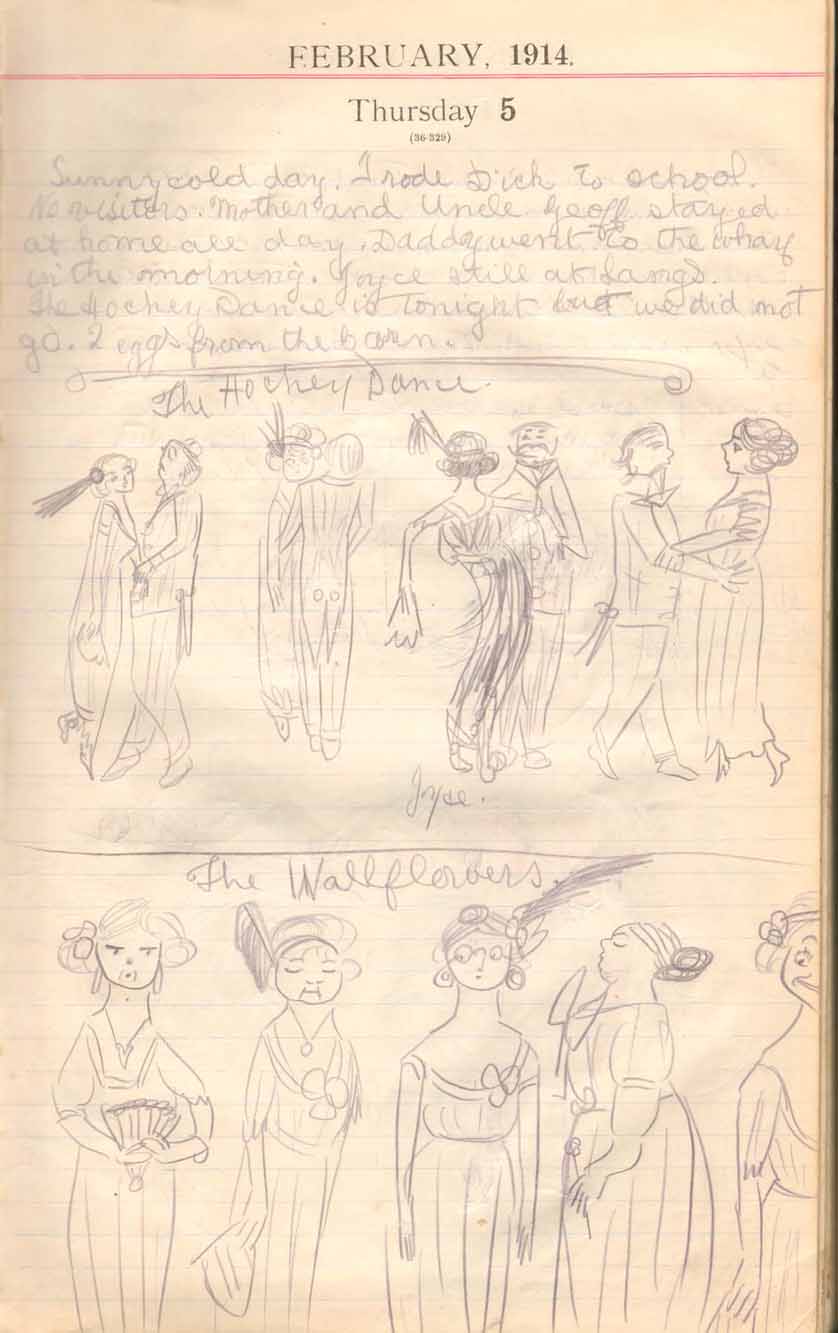 FEBRUARY, 1914.
Thursday 5
(36-329)
Sunny cold day. I rode Dick to school.
No visitors. Mother and Uncle Geoff stayed
at home all day. Daddy went to the wharf
in the morning. Joyce still at Langs.
The Hockey Dance is tonight but we did not
go. 2 eggs from the barn.
The Hockey Dance.
Joyce.
The Wallflowers.